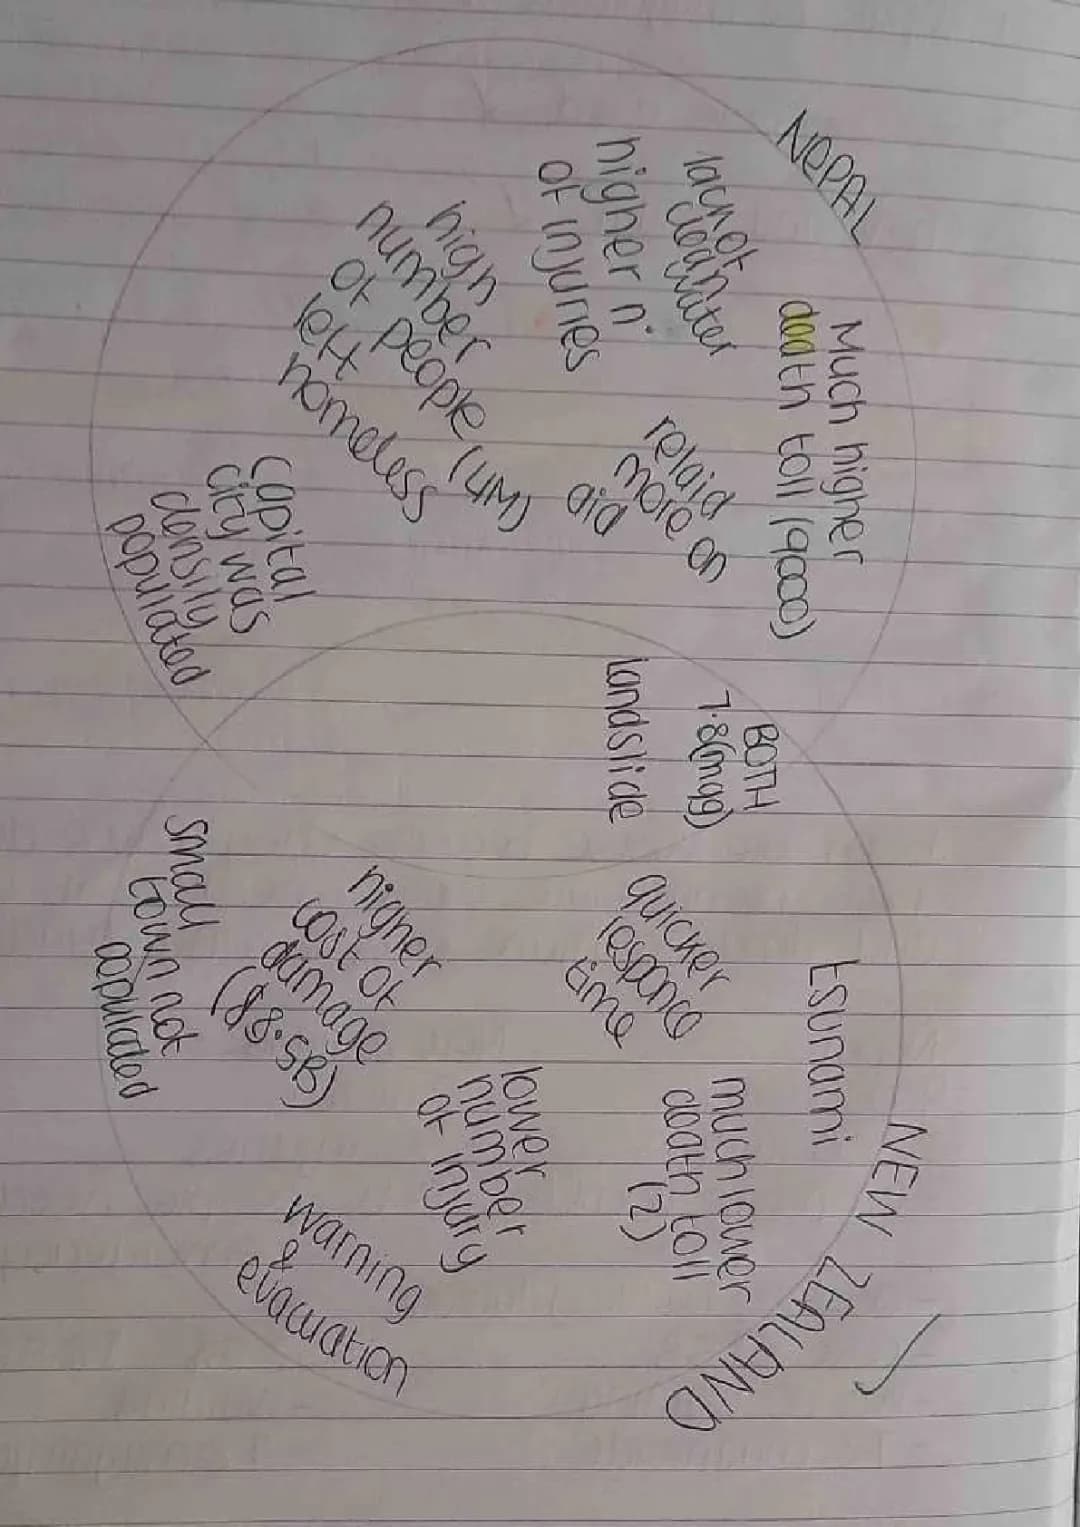 NEPAL
Much higher
death toll (9000)
lack of
clean water
higher n°
of injuries
relaid
more on
aid
high
number
of people (4M)
left
homeless
Capital
city was
densily
populated
BOTH
7.8(mag)
landslide
NEW ZEALAND
tsunami
quicker
responce
time
much lower
death toll
(2)
higher
cost of
damage
($8.5B)
lower
number
of injury
small
town not
populated
warning
&
evacuation